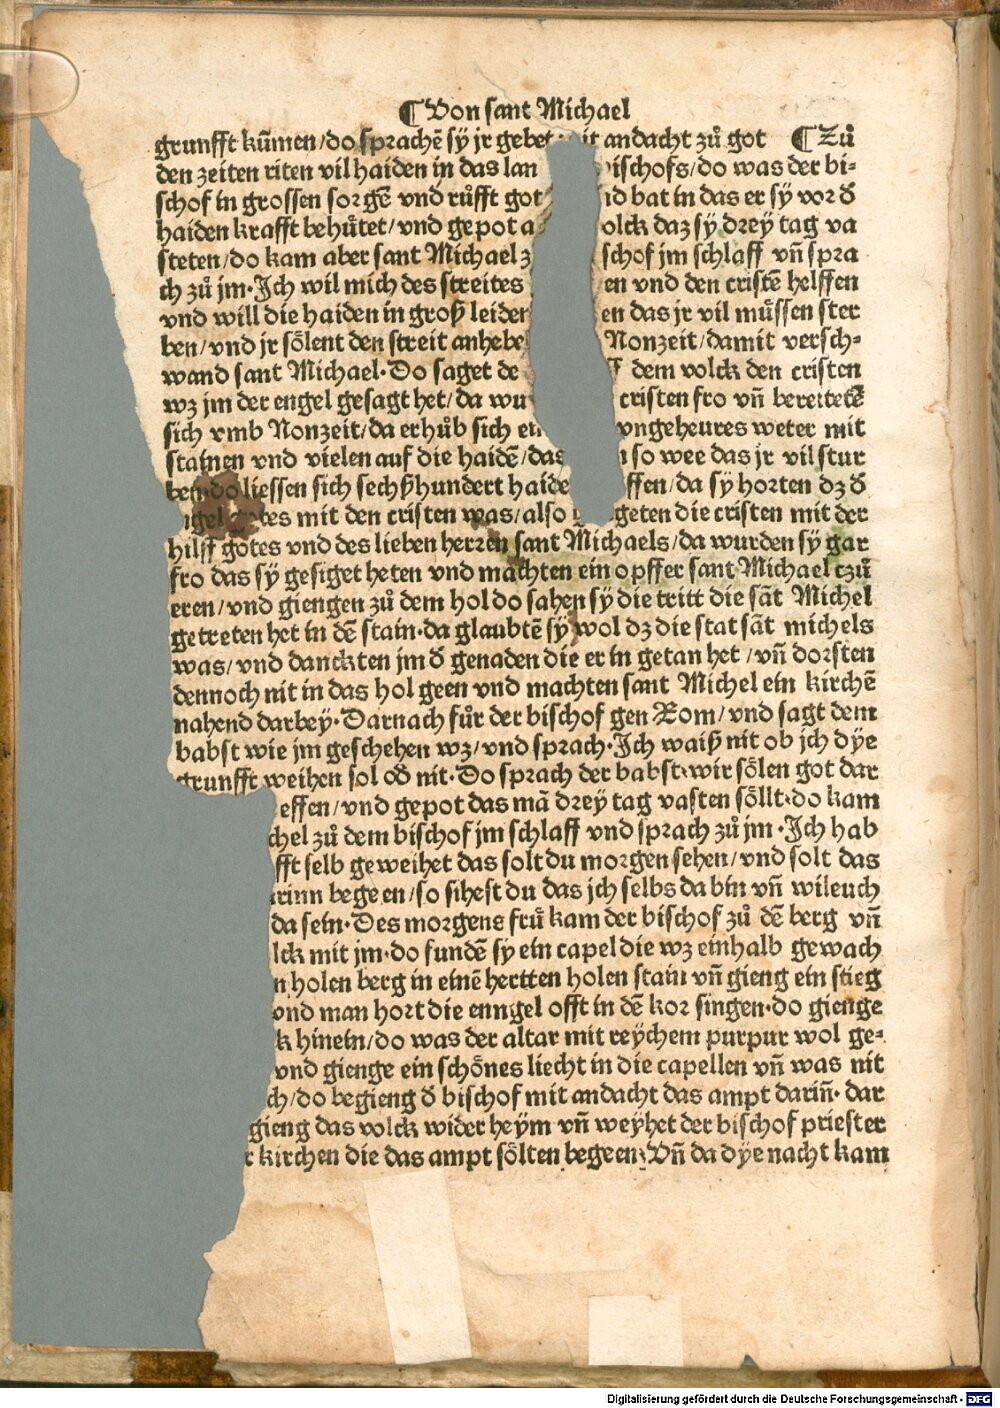 ¶ Von sant Michael
grunfft kūmen/do sprachē sÿ jr gebet andacht zů got ¶ Zů
den zeiten riten vil haiden in das lan ischofs/do was der bi-
schof in grossen sorgē vnd růfft got bat in das er sÿ vor d̄
haiden krafft behůtet/vnd gepot olck daz sÿ dreÿ tag va
steten/do kam aber sant Michael schof jm schlaff vn̄ spra
ch zů jm·Ich wil mich des streites en vnd den cristē helffen
vnd will die haiden in groß leiden en das jr vil můssen ster
ben/vnd jr sőlent den streit anhebe Nonzeit/damit versch-
wand sant Michael·Do saget de dem volck den cristen
wz jm der engel gesagt het/da wu cristen fro vn̄ bereitetē
sich vmb Nonzeit/da erhůb sich ein vngeheures weter mit
stainen vnd vielen auf die haidē/das so wee das jr vil stur
ben·do liessen sich sechßhundert haide ffen/da sÿ horten dz d̄
ngel gotes mit den cristen was/also geten die cristen mit der
hilff gotes vnd des lieben herren sant Michaels/da wurden sÿ gar
fro das sÿ gesiget heten vnd machten ein opffer sant Michael czů
eren/vnd giengen zů dem hol do sahen sÿ die tritt die sāt Michel
getreten het in dē stain·da glaubtē sÿ wol dz die stat sāt michels
was/vnd danckten jm d̄ genaden die er in getan het/vn̄ dorsten
dennoch nit in das hol geen vnd machten sant Michel ein kirchē
nahend darbeÿ·Darnach fůr der bischof gen Rom/vnd sagt dem
babst wie jm geschehen wz/vnd sprach·Ich waiß nit ob jch dÿe
grunfft weihen sol od̄ nit·Do sprach der babst·wir sőlen got dar
effen/vnd gepot das mā dreÿ tag vasten sőllt·do kam
chel zů dem bischof jm schlaff vnd sprach zů jm·Ich hab
fft selb geweihet das solt du morgen sehen/vnd solt das
rinn begeen/so sihest du das jch selbs da bin vn̄ wil euch
da sein·Des morgens frů kam der bischof zů dē berg vn̄
lck mit jm·do fundē sÿ ein capel die wz einhalb gewach
n holen berg in einē hertten holen stain vn̄ gieng ein stieg
vnd man hort die enngel offt in dē kor singen·do gienge
k hinein/do was der altar mit reÿchem purpur wol ge-
vnd gienge ein schőnes liecht in die capellen vn̄ was nit
ch/do begieng d̄ bischof mit andacht das ampt darin̄·dar
gieng das volck wider heÿm vn̄ weÿhet der bischof priester
r kirchen die das ampt sőlten begeen·Vn̄ da dÿe nacht kam
Digitalisierung gefördert durch die Deutsche Forschungsgemeinschaft - DFG